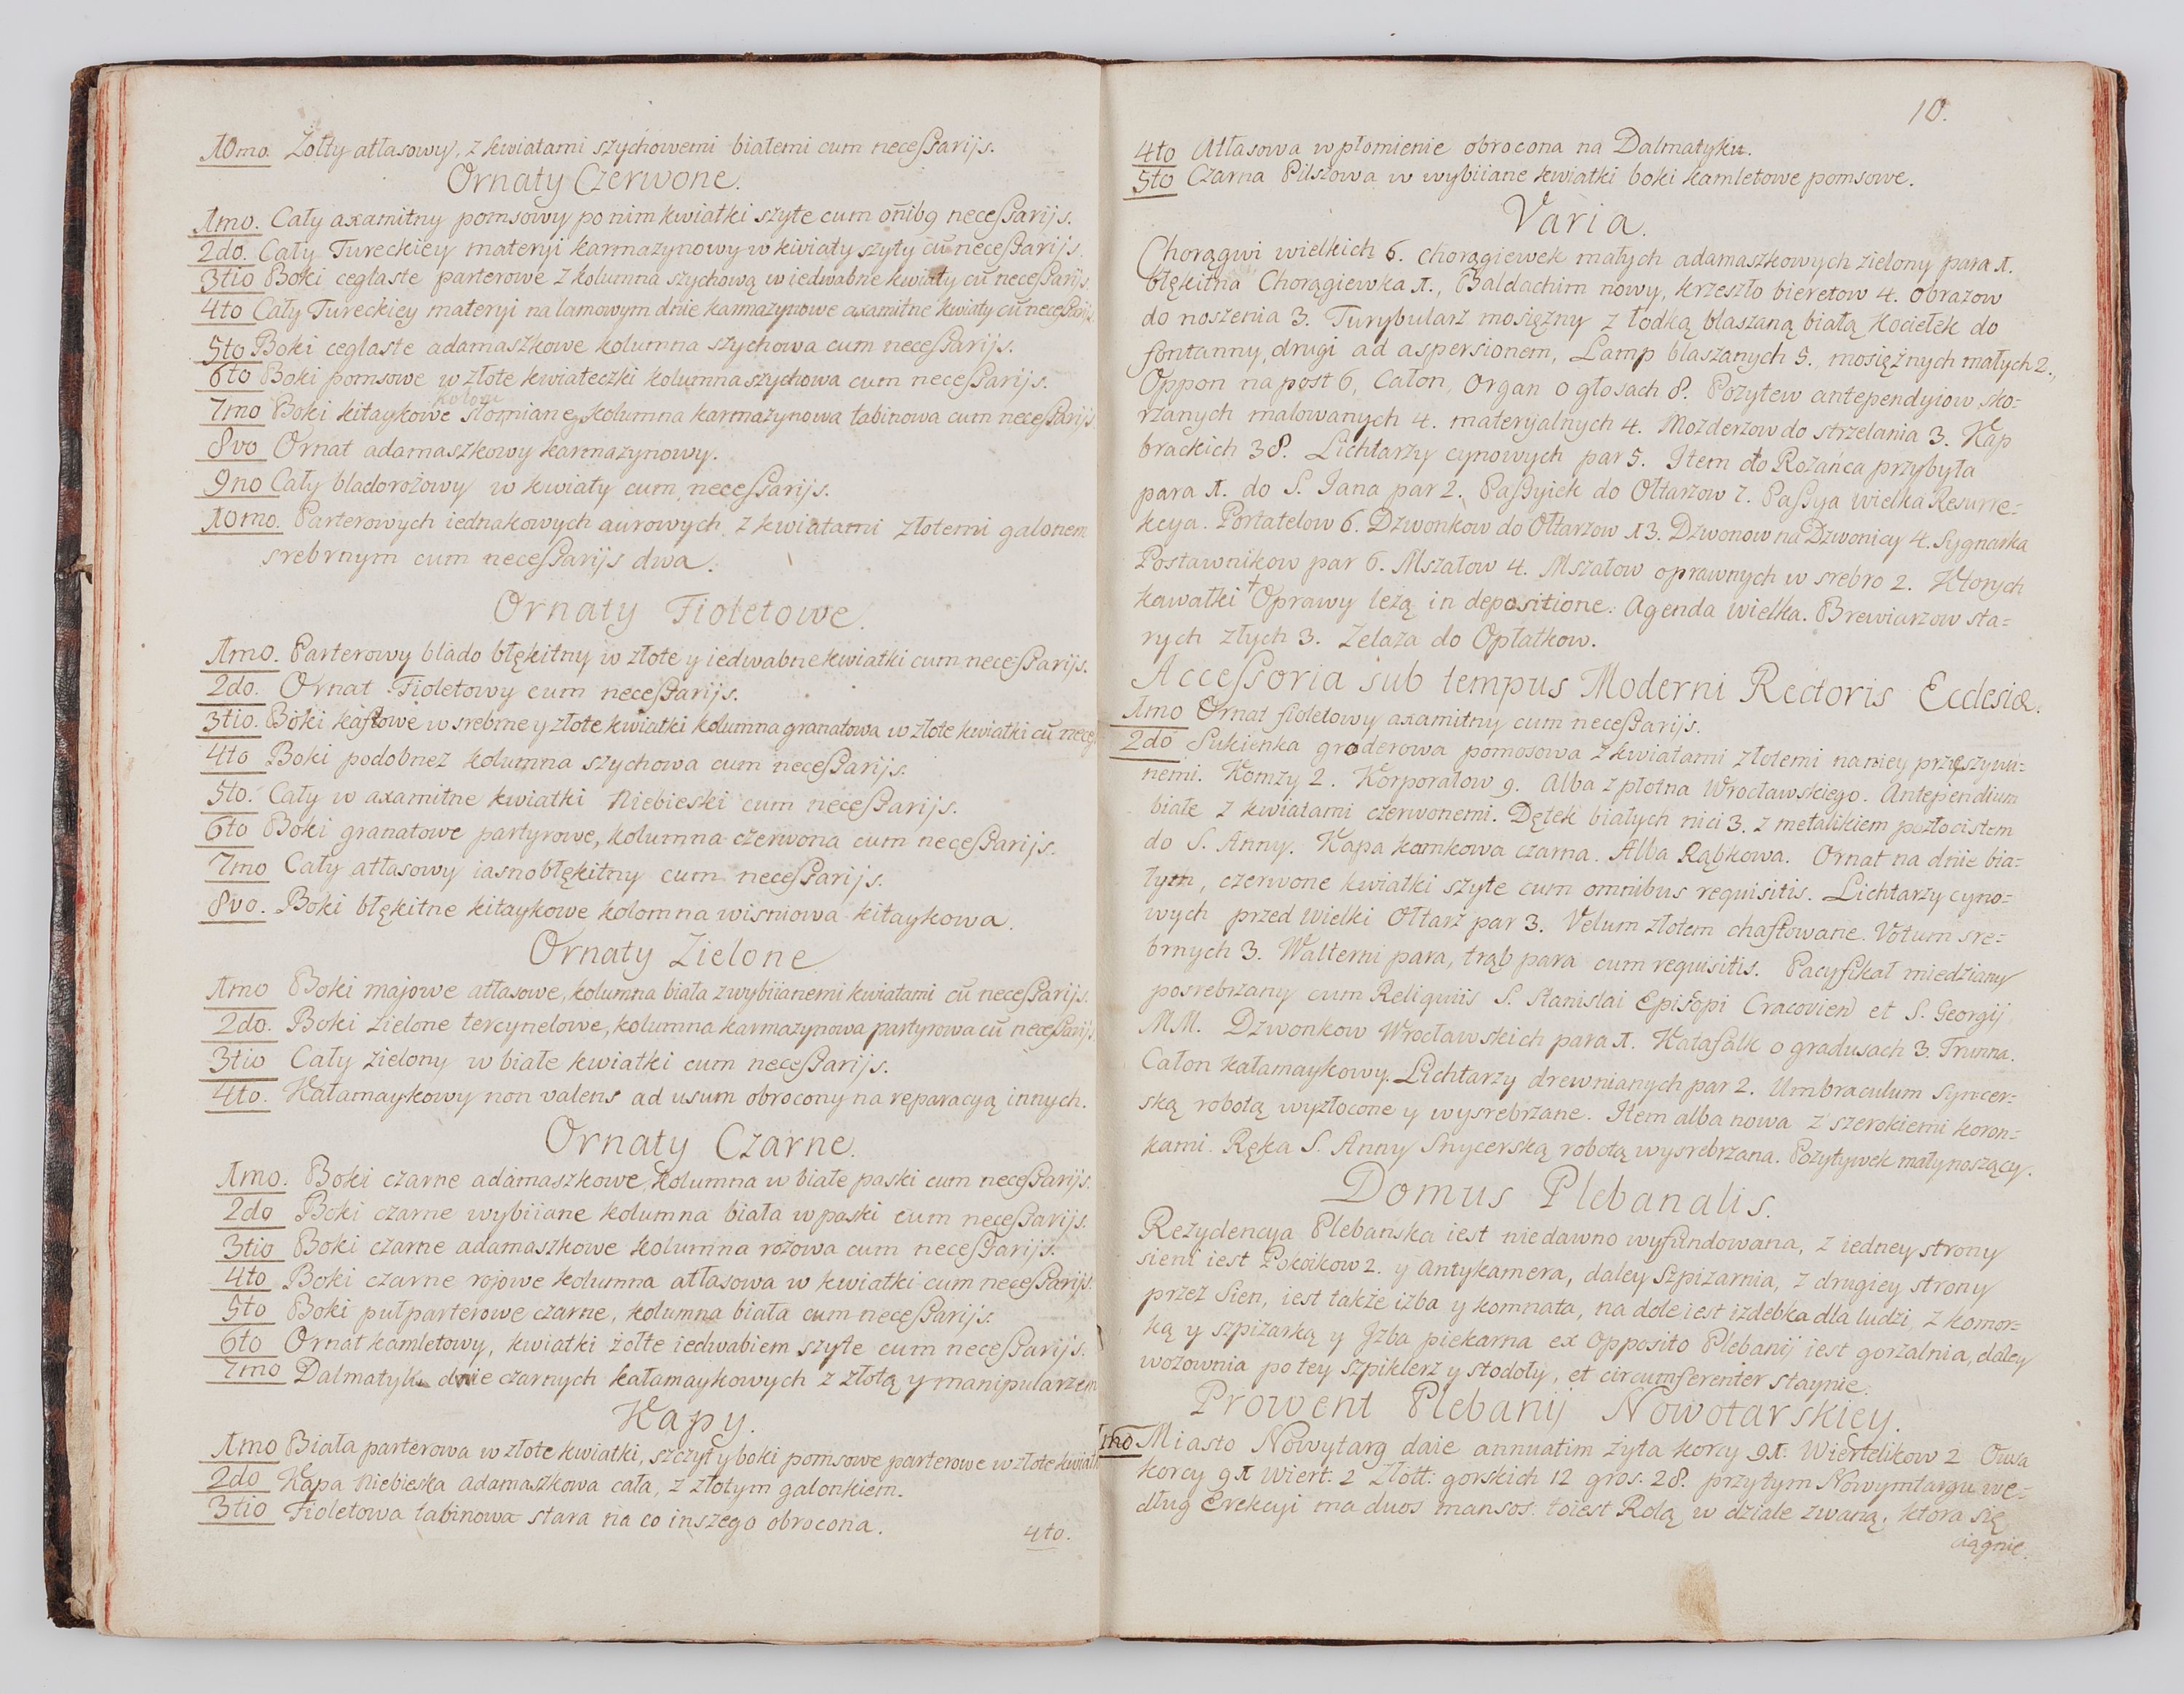 10mo. Żołty atłasowy, z kwiatami szychowemi białemi cum necessarijs.
Ornaty Czerwone.
1mo. Cały axamitny pomsowy po nim kwiatki szyte cum onibq necessarijs.
2do. Cały Tureckiey materyi karmazynowy w kwiaty szyty cū necessarijs.
3tio Boki ceglaste parterowe z kolumna szychową w iedwabne kwiaty cū necessarijs.
4to Cały Tureckiey materyi na lamowym dnie karmazynowe axamitne kwiaty cū necessarijs
5to Boki ceglaste adamaszkowe kolumna szychowa cum necessarijs.
6to Boki pomsowe w złote kwiateczki kolumna szychowa cum necessarijs.
kolom
7mo Boki kitaykowe słomiane kolumna karmazynowa tabinowa cum necessarijs
8vo Ornat adamaszkowy karmazynowy.
9no Cały bladorożowy w kwiaty cum necessarijs.
10mo. Parterowych iednakowych aurowych z kwiatami złotemi galonem
srebrnym cum necessarijs dwa.
Ornaty Fioletowe.
1mo. Parterowy blado błękitny w złote y iedwabne kwiatki cum necessarijs.
2do. Ornat Fioletowy cum necessarijs.
3tio. Boki kastowe w srebrne y złote kwiatki kolumna granatowa w złote kwiatki cū necess
4to Boki podobnez kolumna szychowa cum necessarijs.
5to. Cały w axamitne kwiatki Niebieski cum necessarijs.
6to Boki granatowe partyrowe, kolumna czerwona cum necessarijs.
7mo Cały atłasowy iasnobłękitny cum necessarijs.
8vo. Boki błękitne kitaykowe kolomna wisniowa kitaykowa.
Ornaty Zielone
1mo Boki majowe atłasowe, kolumna biała z wybiianemi kwiatami cū necessarijs.
2do. Boki zielone tercynelowe, kolumna karmazynowa partyrowa cū necessarijs
3tio Cały zielony w białe kwiatki cum necessarijs.
4to. Kałamaykowy non valens ad usum obrocony na reparacyą innych.
Ornaty Czarne.
1mo. Boki czarne adamaszkowe, kolumna w białe paski cum necessarijs.
2do Boki czarne wybiiane kolumna biała w paski cum necessarijs.
3tio Boki czarne adamaszkowe kolumna rożowa cum necessarijs.
4to Boki czarne rojowe kolumna atłasowa w kwiatki cum necessarijs.
5to Boki pułparterowe czarne, kolumna biała cum necessarijs.
6to Ornat kamletowy, kwiatki żołte iedwabiem szyte cum necessarijs.
7mo Dalmatyk dwie czarnych kałamaykowych z złotą y manipularzem
Kapy.
1mo Biała parterowa w złote kwiatki, szczyt y boki pomsowe parterowe w złote kwiatki
2do Kapa Niebieska adamaszkowa cała, z złotym galonkiem.
3tio Fioletowa tabinowa stara na co inszego obrocona.
4to.
10.
4to Atłasowa w płomienie obrocona na Dalmatyku.
5to Czarna Pilszowa w wybiiane kwiatki boki kamletowe pomsowe.
Varia.
Chorągwi wielkich 6. chorągiewek małych adamaszkowych zielony para 1.
błękitna Chorągiewka 1., Baldachim nowy, krzeszło bieretow 4. obrazow
do noszenia 3. Turybularz mosiężny z łodką blaszaną białą Kociełek do
fontanny, drugi ad aspersionem, Lamp blaszanych 5. mosiężnych małych 2.,
Oppon na post 6, Całon, Organ o głosach 8. Pozytew antependyiow sko-
rzanych malowanych 4. materyalnych 4. Mozderzow do strzelania 3. Kap
brackich 38. Lichtarzy cynowych par 5. Item do Rożańca przybyła
para 1. do S. Jana par 2. Passyiek do Ołtarzow 7. Passya wielka Resurre-
kcya. Portatelow 6. Dzwonkow do Ołtarzow 13. Dzwonow na Dzwonicy 4. Sygnarka
Postawnikow par 6. Mszałow 4. Mszałow oprawnych w srebro 2. Których
kawałki + Oprawy leżą in depositione. Agenda wielka. Brewiarzow sta-
rych złych 3. Zelaza do Opłatkow.
Accessoria sub tempus Moderni Rectoris Ecclesiæ.
1mo Ornat fioletowy axamitny cum necessarijs.
2do Sukienka groderowa pomosowa z kwiatami złotemi na niey przeszywa-
nemi. Komzy 2. Korporałow 9. Alba z płotna Wrocławskiego. Antependium
białe z kwiatami czerwonemi. Dętek białych nici 3. z metalikiem pozłocistem
do S. Anny. Kapa kamkowa czarna. Alba Rąbkowa. Ornat na dnie bia-
łym, czerwone kwiatki szyte cum omnibus requisitis. Lichtarzy cyno-
wych przed wielki Ołtarz par 3. Velum złotem chaftowane. Votum sre-
brnych 3. Walterni para, trąb para cum requisitis. Pacyfikał miedziany
posrebrzany cum Reliquiis S. Stanislai Episcopi Cracovien et S. Georgij
MM. Dzwonkow Wrocławskich para 1. Katafalk o gradusach 3. Trunna.
Całon kałamaykowy. Lichtarzy drewnianych par 2. Umbraculum Syncer-
ską robotą wyzłocone y wysrebrzane. Item alba nowa z szerokiemi koron-
kami. Ręka S. Anny Snycerską robotą wysrebrzana. Pozytywek mały noszący.
Domus Plebanalis.
Rezydencya Plebańska iest niedawno wyfundowana, z iedney strony
sieni iest Pokoikow 2. y Antykamera, daley Szpizarnia, z drugiey strony
przez Sien, iest także izba y komnata, na dole iest izdebka dla ludzi z komor-
ką y szpizarką y Jzba piekarna ex Opposito Plebanij iest gorzalnia, daley
wozownia po tey szpiklerz y stodoły, et circumferenter staynie.
Prowent Plebanij Nowotarskiey.
1mo Miasto Nowytarg daie annuatim żyta korcy 91. Wiertelikow 2 Owsa
korcy 91 wiert: 2 Złott: gorskich 12 gros. 28. przytym Nowymtargu we-
dług Erekcyi ma duos mansos. toiest Rolą w dziale zwaną, ktora się
ciągnie.